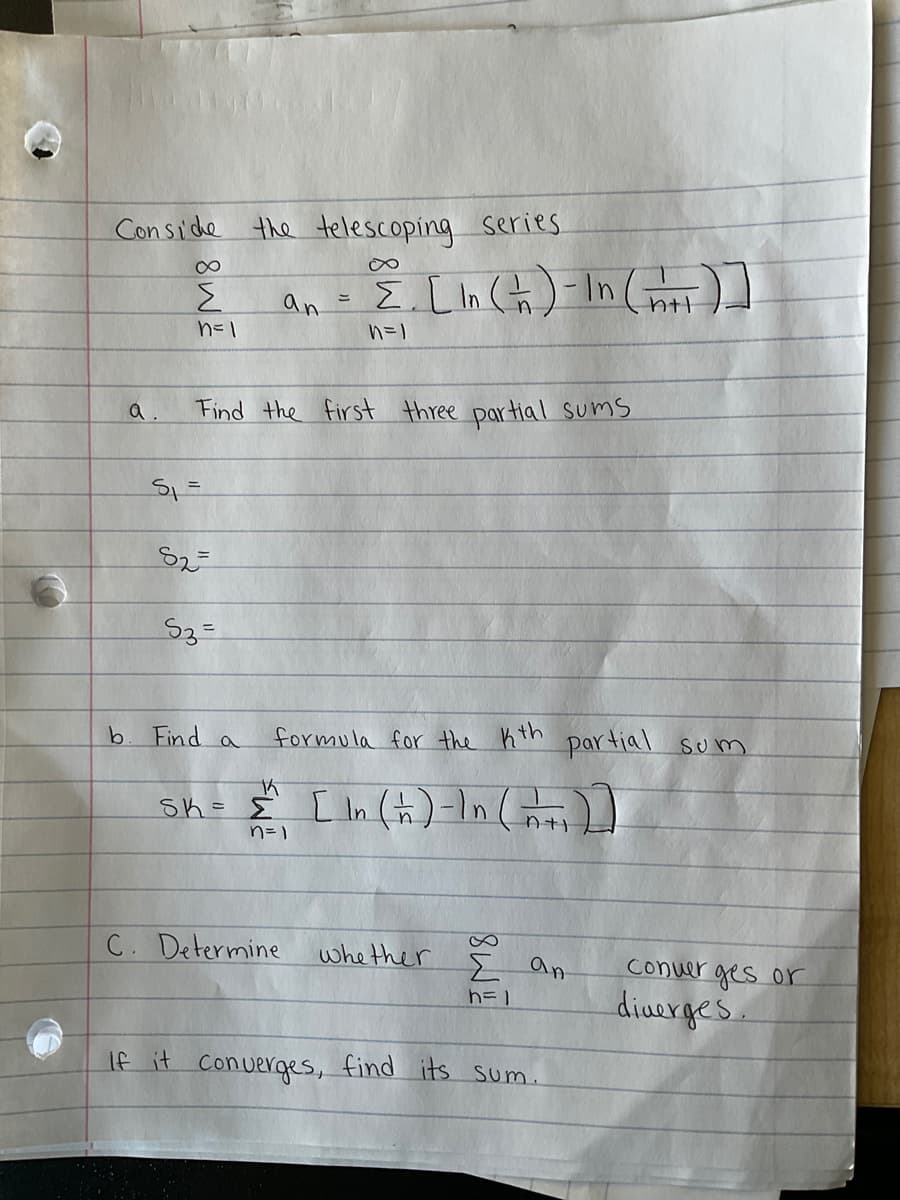 Conside the telescoping series
∞ Σ n=1 an = ∞ Σ n=1 [ ln (1/n) - ln (1/n+1) ]
a. Find the first three partial sums
S1 =
S2 =
S3 =
b. Find a formula for the kth partial sum
Sk = k Σ n=1 [ ln (1/n) - ln (1/n+1) ]
C. Determine whether ∞ Σ n=1 an converges or
diverges.
If it converges, find its sum.